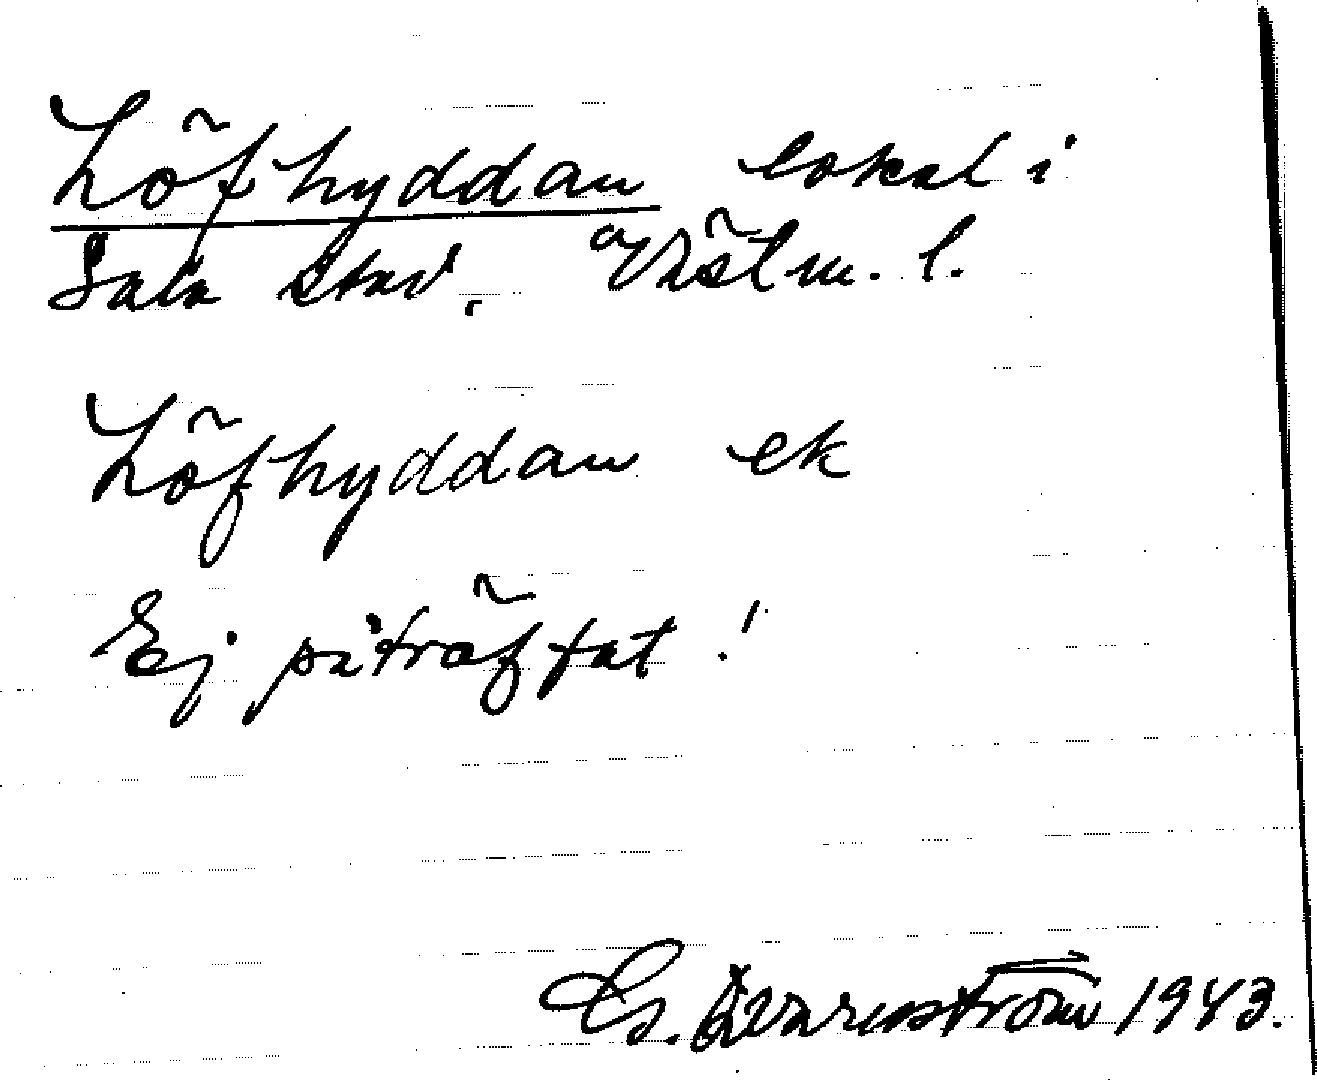 Löfhyddan lokal i
Sala stad. Västm. l.
Löfhyddan ek
Ej påträffat!
G. Qvarnström 1943.